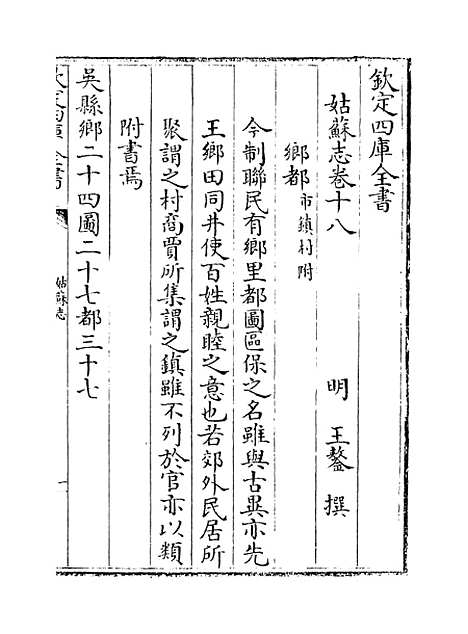 欽定四庫全書
姑蘇志卷十八
明 王鏊 撰
鄉都市鎮村附
今制聯民有鄉里都圖區保之名雖與古異亦先
王鄉田同井使百姓親睦之意也若郊外民居所
聚謂之村商賈所集謂之鎮雖不列於官亦以類
附書焉
吳縣鄉二十四圖二十七都三十七
欽定四庫全書
姑蘇志
一